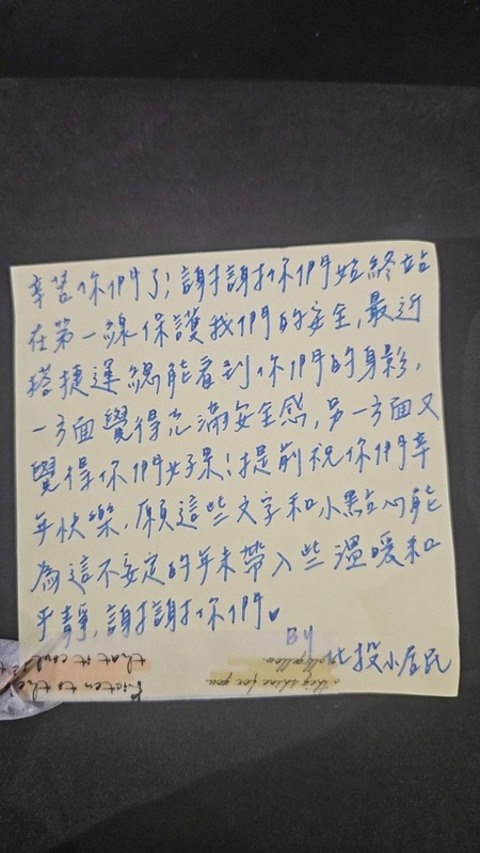 辛苦你們了!謝謝你們始終站
在第一線保護我們的安全,最近
搭捷運總能看到你們的身影,
一方面覺得充滿安全感,另一方面又
覺得你們好累!提前祝你們辛
年快樂,願這些文字和小點心能
為這不安定的年末帶入些溫暖和
平靜,謝謝你們♥
BY 北投小居民
that it could
Listen to the
they shine for you.